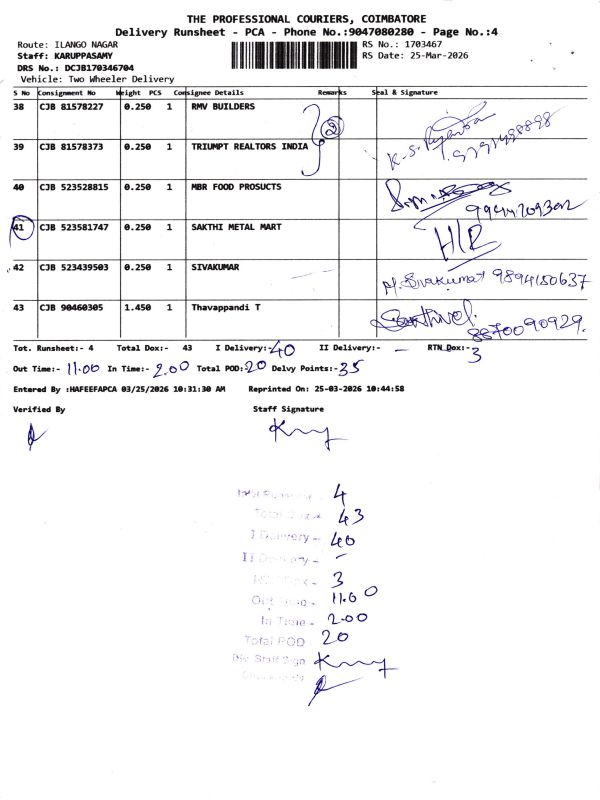 THE PROFESSIONAL COURIERS, COIMBATORE
Delivery Runsheet - PCA - Phone No.:9047080280 - Page No.:4
Route: ILANGO NAGAR RS No.: 1703467
Staff: KARUPPASAMY RS Date: 25-Mar-2026
DRS No.: DCJB170346704
Vehicle: Two Wheeler Delivery
S No Consignment No Weight PCS Consignee Details Remarks Seal & Signature
38 CJB 81578227 0.250 1 RMV BUILDERS 2
39 CJB 81578373 0.250 1 TRIUMPT REALTORS INDIA K.S.
40 CJB 523528815 0.250 1 MBR FOOD PROSUCTS
41 CJB 523581747 0.250 1 SAKTHI METAL MART H/R
42 CJB 523439503 0.250 1 SIVAKUMAR Sivakumar 9894150637
43 CJB 90460305 1.450 1 Thavappandi T Sakthivel. 8870090929.
Tot. Runsheet:- 4 Total Dox:- 43 I Delivery:- 40 II Delivery:- - RTN Dox:- 3
Out Time:- 11.00 In Time:- 2.00 Total POD: 20 Delvy Points:- 35
Entered By :HAFEEFAPCA 03/25/2026 10:31:30 AM Reprinted On: 25-03-2026 10:44:58
Verified By Staff Signature
4
Total Dox - 43
I Delivery - 40
II Delivery - -
3
Out Time - 11.00
In Time - 2.00
Total POD 20
Div Staff Sign